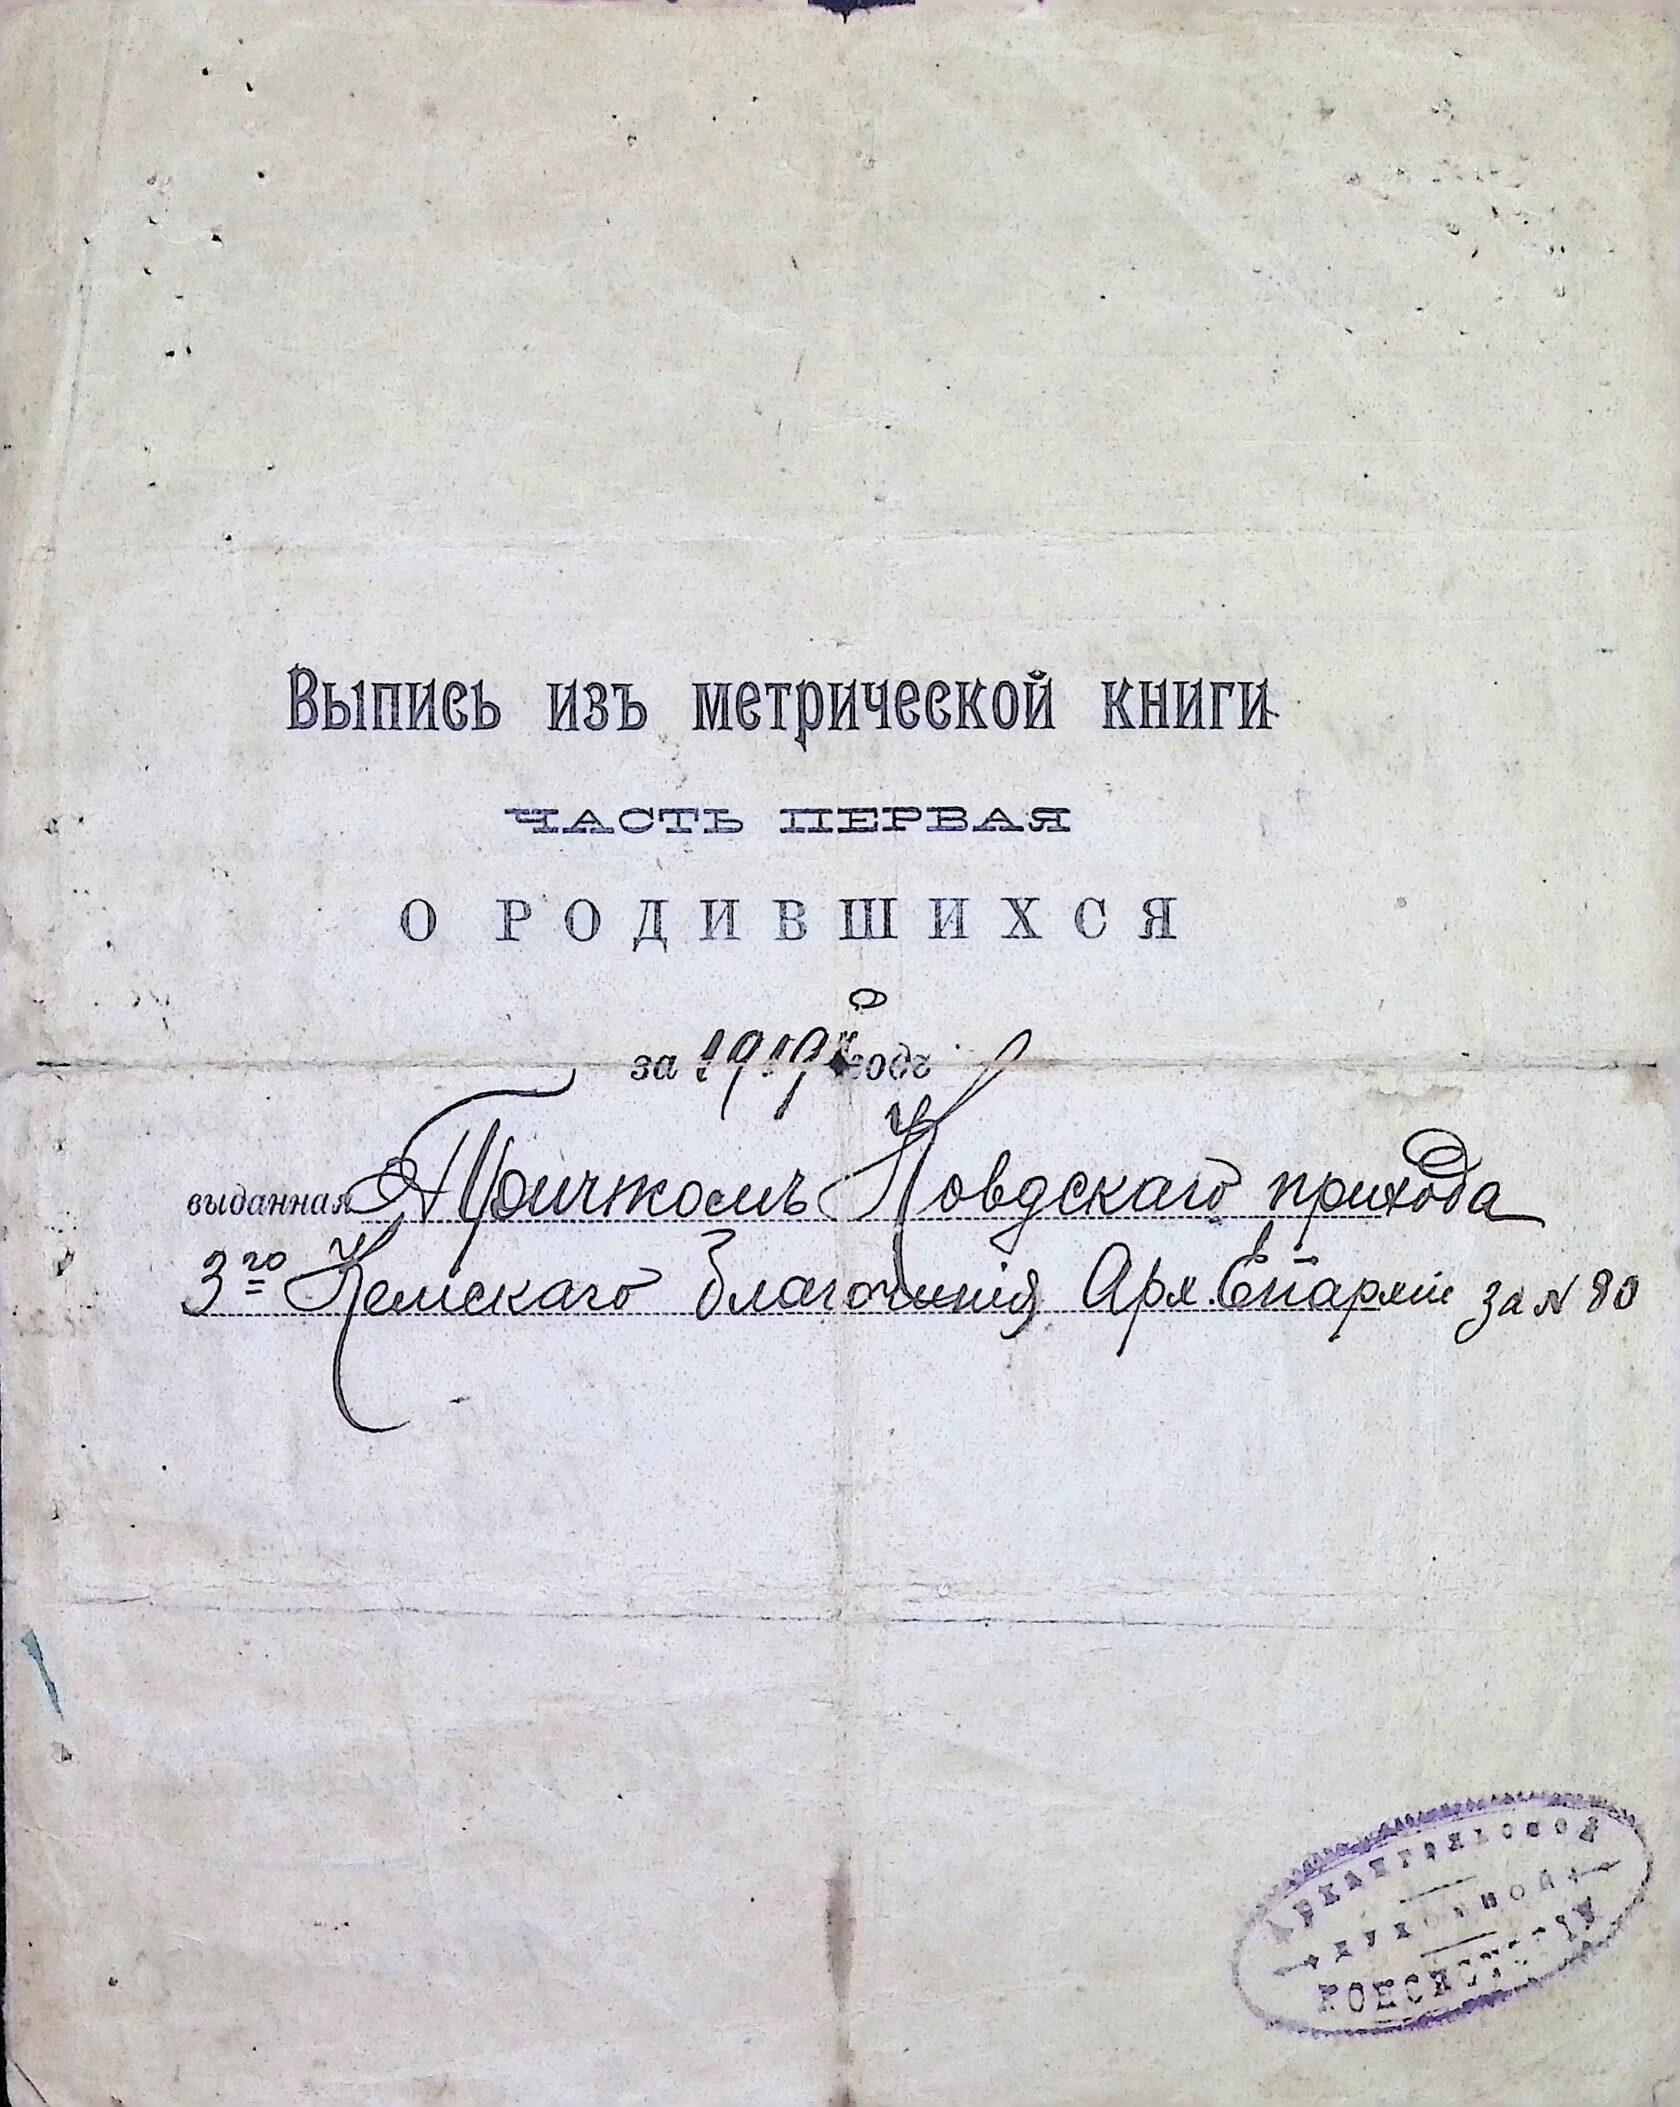 Выпись изъ метрической книги
ЧАСТЬ ПЕРВАЯ
О РОДИВШИХСЯ
за 1919 годъ
выданная Причтомъ Ковдскаго прихода
3го Кемскаго благочинія Арх. Епархіи за N 80
АРХАНГЕЛЬСКОЙ
ДУХОВНОЙ
КОНСИСТОРІИ